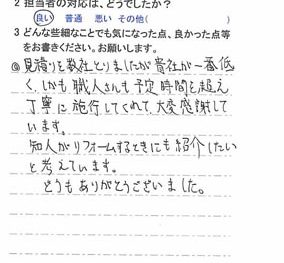 2 担当者の対応は、どうでしたか?
良い 普通 悪い その他(
3 どんな些細なことでも気になった点、良かった点等
をお書きください。お願いします。
◎見積りを数社とりましたが貴社が一番低
く、しかも職人さんも予定時間を超え
丁寧に施行してくれて、大変感謝して
います。
知人がリフォームするときにも紹介したい
と考えています。
どうもありがとうございました。